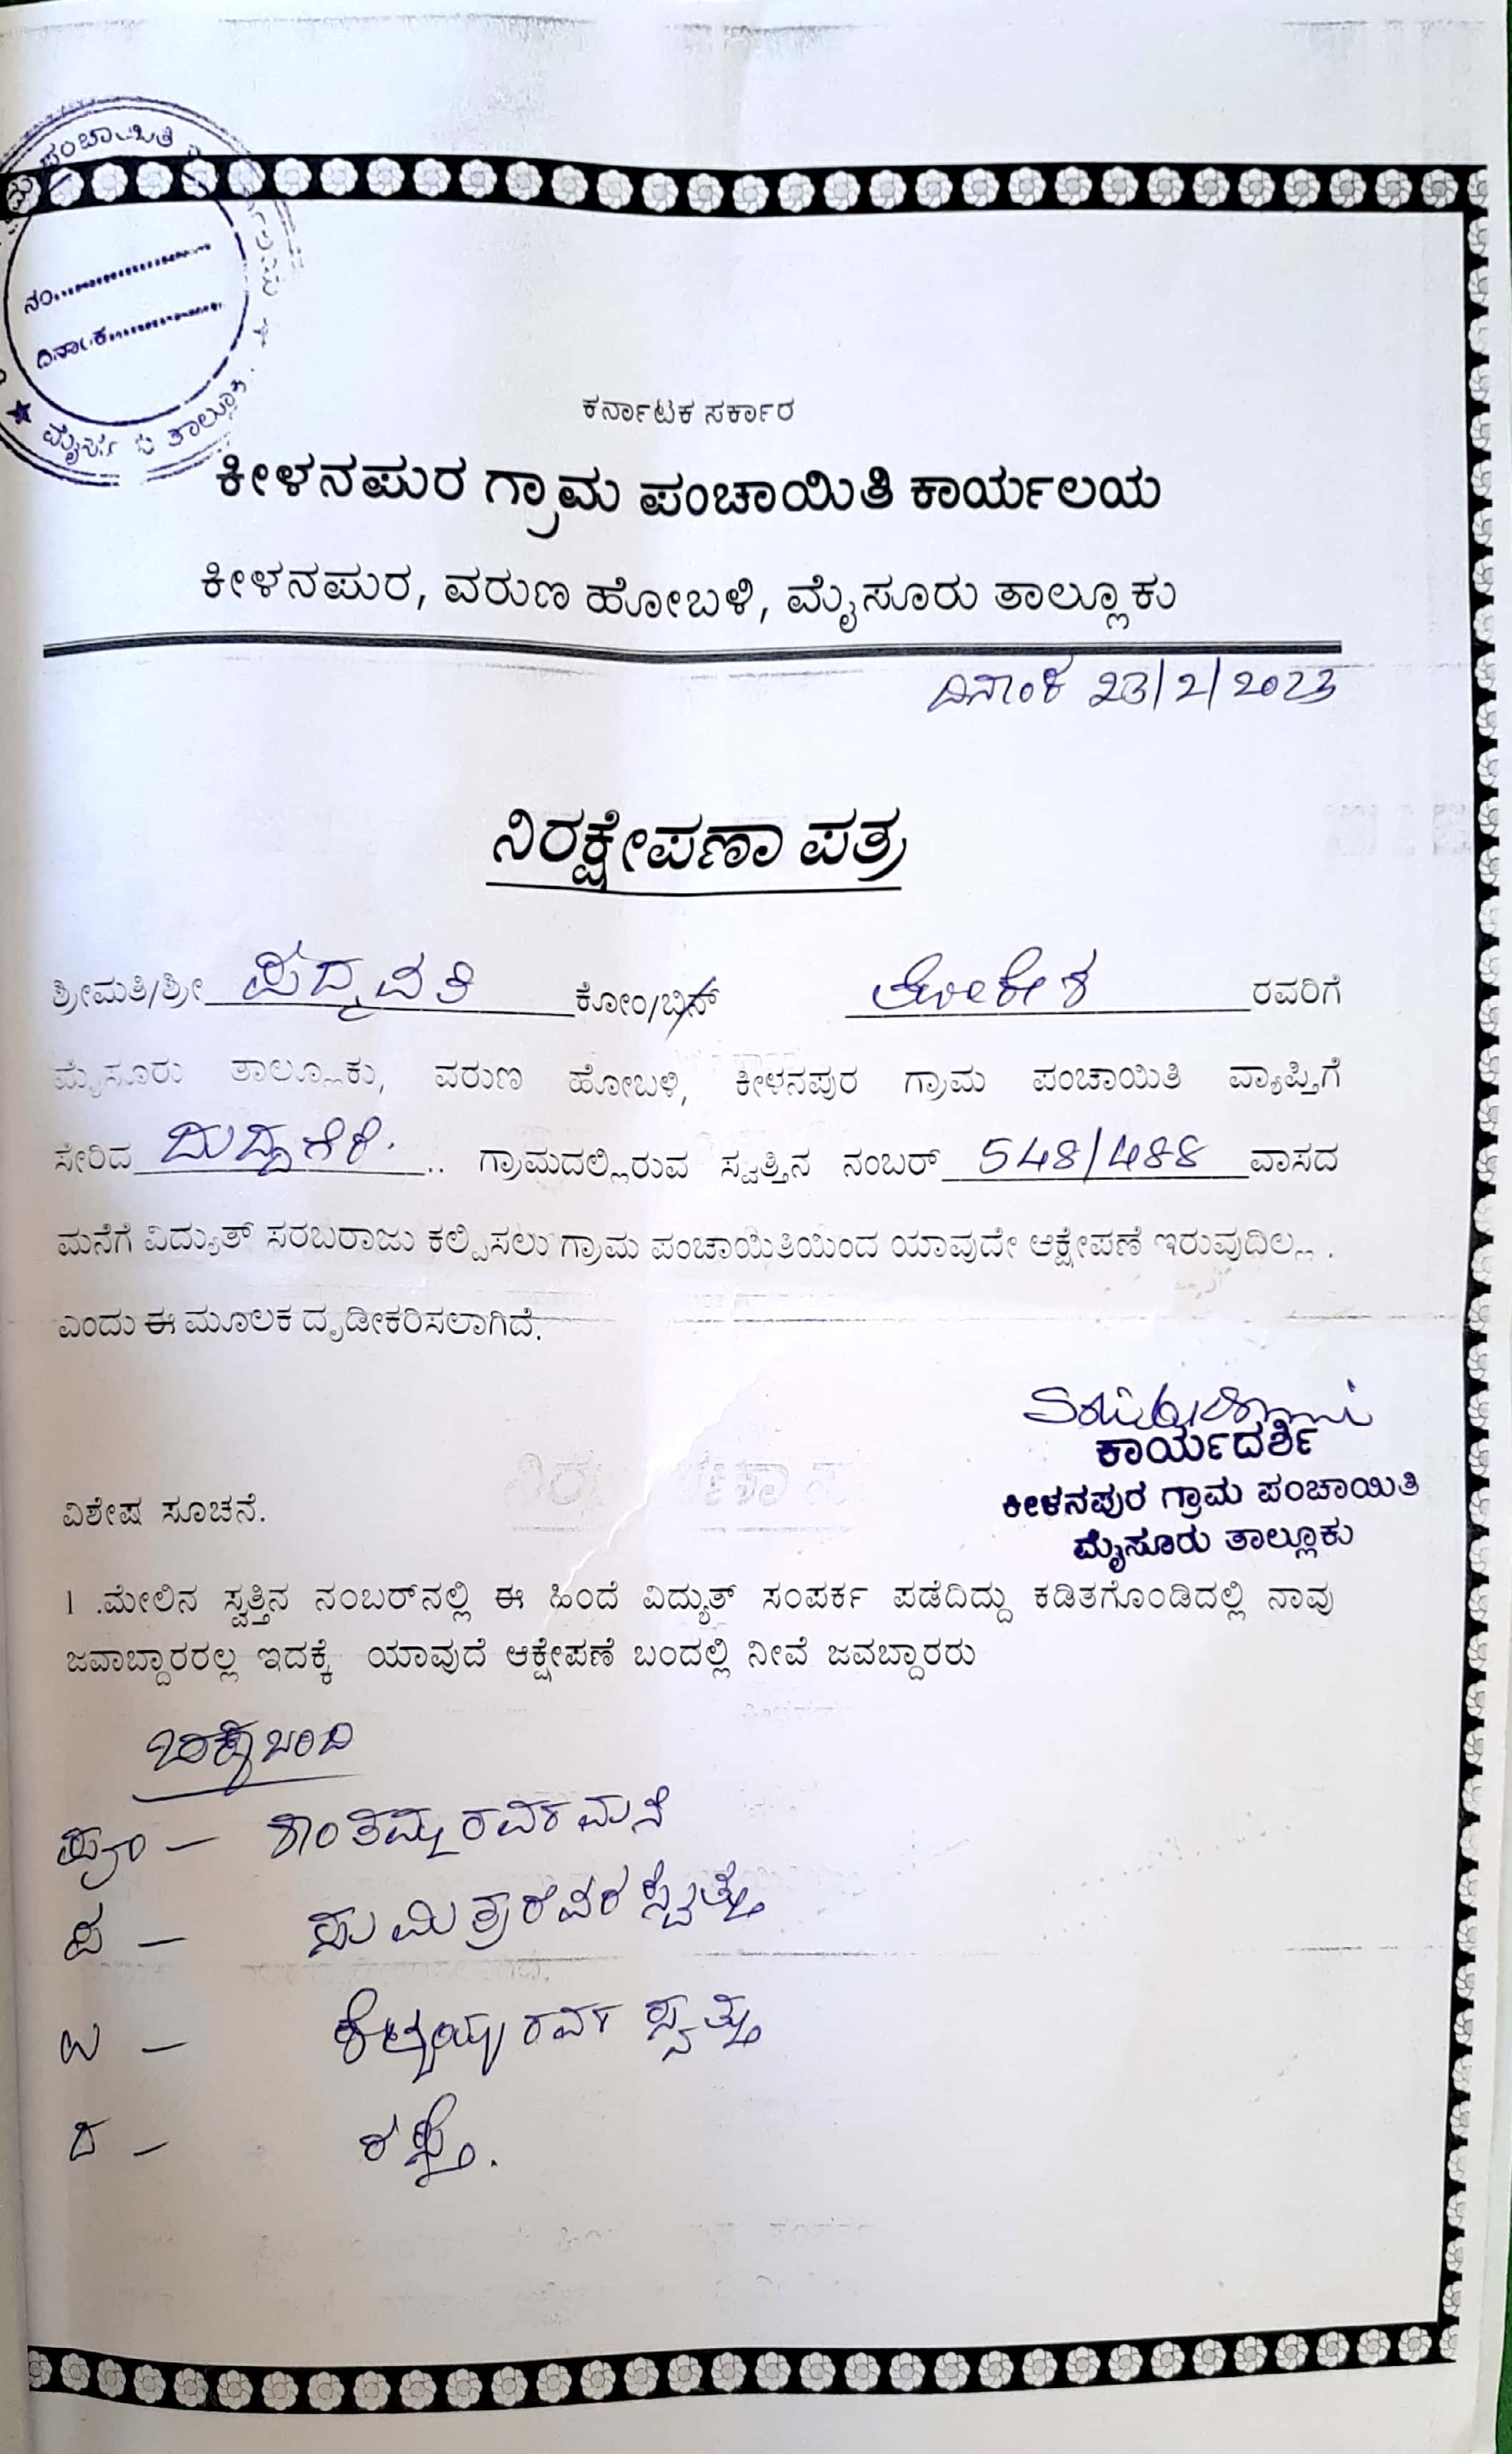 ಪಂಚಾಯಿತಿ
ನಂ....................
ದಿನಾಂಕ....................
ತಾಲ್ಲೂಕು
ಕರ್ನಾಟಕ ಸರ್ಕಾರ
ಕೀಳನಪುರ ಗ್ರಾಮ ಪಂಚಾಯಿತಿ ಕಾರ್ಯಲಯ
ಕೀಳನಪುರ, ವರುಣ ಹೋಬಳಿ, ಮೈಸೂರು ತಾಲ್ಲೂಕು
ದಿನಾಂಕ 23/2/2023
ನಿರಕ್ಷೇಪಣಾ ಪತ್ರ
ಶ್ರೀಮತಿ/ಶ್ರೀ ಪದ್ಮವತಿ ಕೋಂ/ಬಿನ್ ಲೋಕೇಶ ರವರಿಗೆ
ಮೈಸೂರು ತಾಲ್ಲೂಕು, ವರುಣ ಹೋಬಳಿ, ಕೀಳನಪುರ ಗ್ರಾಮ ಪಂಚಾಯಿತಿ ವ್ಯಾಪ್ತಿಗೆ
ಸೇರಿದ ದುದ್ದಗೆರೆ. .. ಗ್ರಾಮದಲ್ಲಿರುವ ಸ್ವತ್ತಿನ ನಂಬರ್ 548/488 ವಾಸದ
ಮನೆಗೆ ವಿದ್ಯುತ್ ಸರಬರಾಜು ಕಲ್ಪಿಸಲು ಗ್ರಾಮ ಪಂಚಾಯಿತಿಯಿಂದ ಯಾವುದೇ ಆಕ್ಷೇಪಣೆ ಇರುವುದಿಲ್ಲ .
ಎಂದು ಈ ಮೂಲಕ ದೃಡೀಕರಿಸಲಾಗಿದೆ.
ಕಾರ್ಯದರ್ಶಿ
ಕೀಳನಪುರ ಗ್ರಾಮ ಪಂಚಾಯಿತಿ
ಮೈಸೂರು ತಾಲ್ಲೂಕು
ವಿಶೇಷ ಸೂಚನೆ.
1 .ಮೇಲಿನ ಸ್ವತ್ತಿನ ನಂಬರ್‌ನಲ್ಲಿ ಈ ಹಿಂದೆ ವಿದ್ಯುತ್ ಸಂಪರ್ಕ ಪಡೆದಿದ್ದು ಕಡಿತಗೊಂಡಿದಲ್ಲಿ ನಾವು
ಜವಾಬ್ದಾರರಲ್ಲ ಇದಕ್ಕೆ ಯಾವುದೆ ಆಕ್ಷೇಪಣೆ ಬಂದಲ್ಲಿ ನೀವೆ ಜವಬ್ದಾರರು
ಚಕ್ಕುಬಂದಿ
ಪೂ - ಶಾಂತಮ್ಮ ರವರ ಮನೆ
ಪ - ಸುಮಿತ್ರರವರ ಸ್ವತ್ತು
ಉ - ರವರ ಸ್ವತ್ತು
ದ - ರಸ್ತೆ.